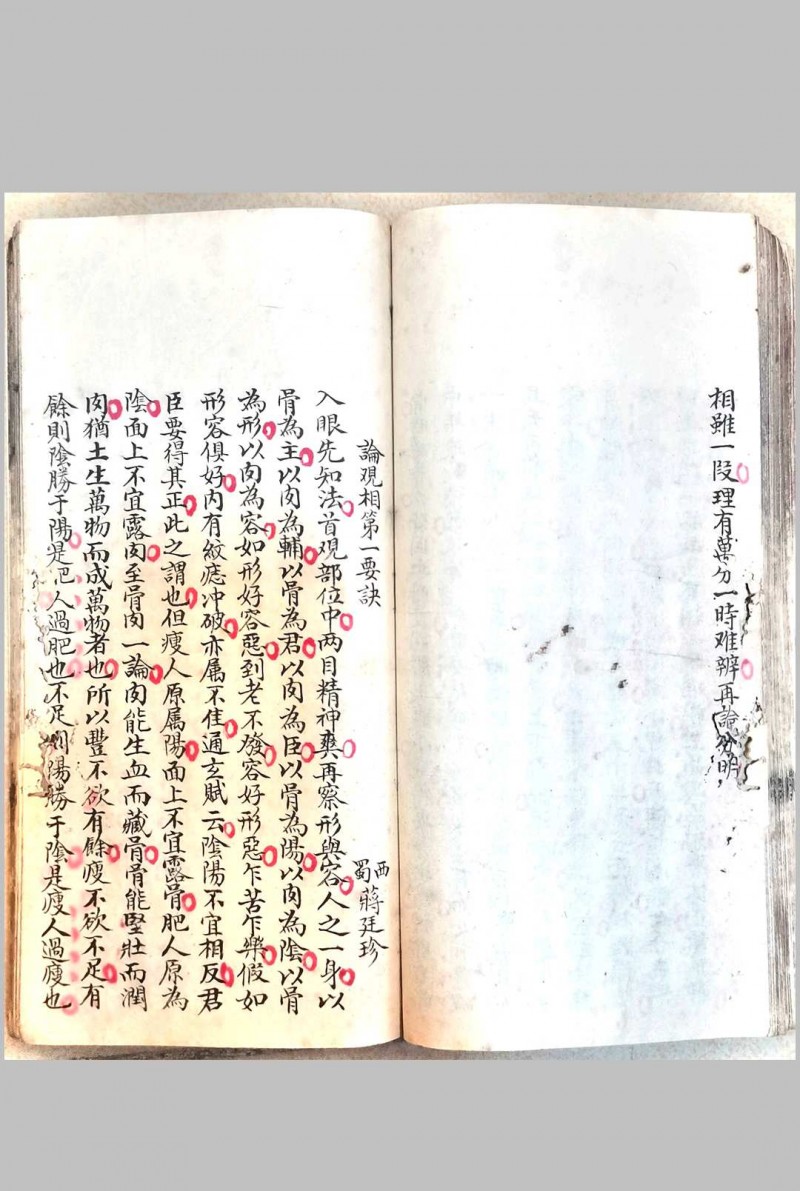 相雖一段理有萬分一時难辨再論分明
論观相第一要訣
西蜀蔣廷珍
入眼先知法首观部位中两目精神爽再察形與容人之一身以
骨為主以肉為輔以骨為君以肉為臣以骨為陽以肉為陰以骨
為形以肉為容如形好容惡到老不發容好形惡乍苦乍樂假如
形容俱好内有紋痣冲破亦属不佳通玄賦云陰陽不宜相反君
臣要得其正此之謂也但瘦人原属陽面上不宜露骨肥人原為
陰面上不宜露肉至骨肉一論肉能生血而藏骨骨能堅壯而潤
肉猶土生萬物而成萬物者也所以豐不欲有餘瘦不欲不足有
餘則陰勝于陽是肥人過肥也不足則陽勝于陰是瘦人過瘦也